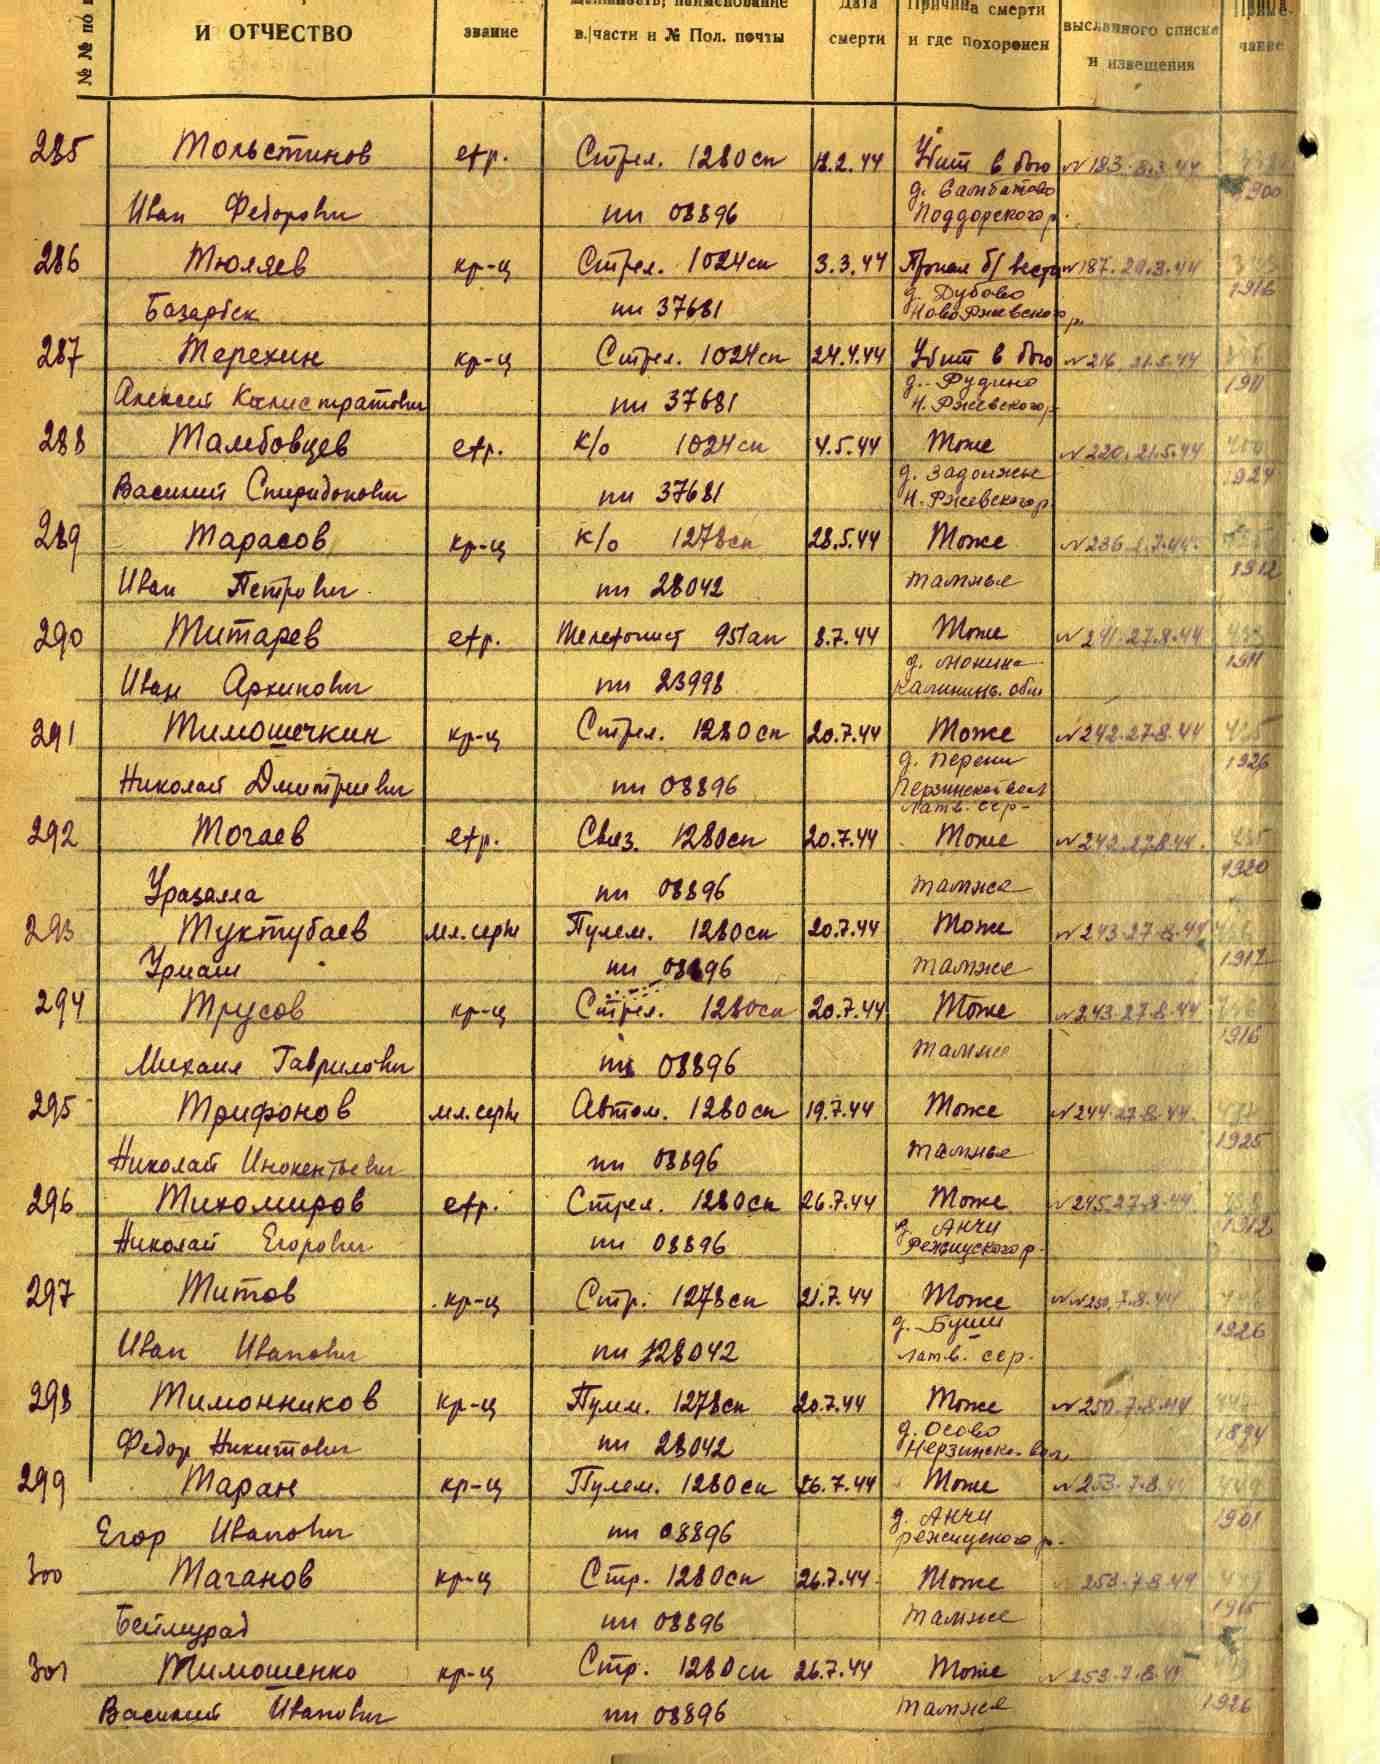 №№ по
И ОТЧЕСТВО
звание
Должность, наименование
в/части и № Пол. почты
Дата
смерти
Причина смерти
и где похоронен
высланного списка
и извещения
Приме-
чание
285 Тольстинов еф. Стрел. 1280 сп 18.2.44 Убит в бою №183-8.3.44
Иван Федорович пп 08896 д. Валбатово 1900
Поддорского р.
286 Тюляев кр-ц Стрел. 1024 сп 3.3.44 Пропал б/вести №187-29.3.44
Базарбек пп 37681 д. Дубово 1916
Новоржевского р.
287 Терехин кр-ц Стрел. 1024 сп 24.4.44 Убит в бою №216 21.5.44
Алексей Калистратович пп 37681 д. Рудино 1911
Н. Ржевского р.
288 Тамбовцев еф. к/о 1024 сп 4.5.44 Тоже №220. 21.5.44
Василий Спиридонович пп 37681 д. Задолжье 1924
Н. Ржевского р.
289 Тарасов кр-ц к/о 1278 сп 28.5.44 Тоже №236 1.7.44
Иван Петрович пп 28042 тамже 1912
290 Титарев еф. Телефонист 951 ап 8.7.44 Тоже №241-27.8.44
Иван Архипович пп 23998 д. Мокино 1911
Калининс. обл.
291 Тимошечкин кр-ц Стрел. 1280 сп 20.7.44 Тоже №242-27.8.44
Николай Дмитриевич пп 08896 д. Перени 1926
Перзинской вол.
Латв. сср-
292 Тогаев еф. Связ. 1280 сп 20.7.44 Тоже №242.27.8.44.
Уразалла пп 08896 тамже 1920
293 Туктубаев мл. серж Пулем. 1280 сп 20.7.44 Тоже №243-27-8-44
Урмаш пп 08896 тамже 1912
294 Трусов кр-ц Стрел. 1280 сп 20.7.44 Тоже №243-27-8-44
Михаил Гаврилович пп 08896 тамже 1916
295 Трифонов мл. серж Автом. 1280 сп 19.7.44 Тоже №244-27-8-44
Николай Инокентьевич пп 08896 тамже 1925
296 Тихомиров еф. Стрел. 1280 сп 26.7.44 Тоже №245.27-8-44
Николай Егорович пп 08896 д. Анчи 1912
Режицского р.
297 Титов кр-ц Стр. 1278 сп 21.7.44 Тоже №250,7-8-44
Иван Иванович пп 28042 д. Буши 1926
Латв. сср.
298 Тимонников кр-ц Пулем. 1278 сп 20.7.44 Тоже №250.7-8-44
Федор Никитович пп 28042 д. Осово 1894
Нерзинско вол.
299 Таран кр-ц Пулем. 1280 сп 26.7.44 Тоже №253-7.8.44
Егор Иванович пп 08896 д. Анчи 1901
Режицского р.
300 Таганов кр-ц Стр. 1280 сп 26.7.44 Тоже 253-7-8-44
Беймурад пп 08896 тамже 1915
301 Тимошенко кр-ц Стр. 1280 сп 26.7.44 Тоже №253-7-8-44
Василий Иванович пп 08896 тамже 1926